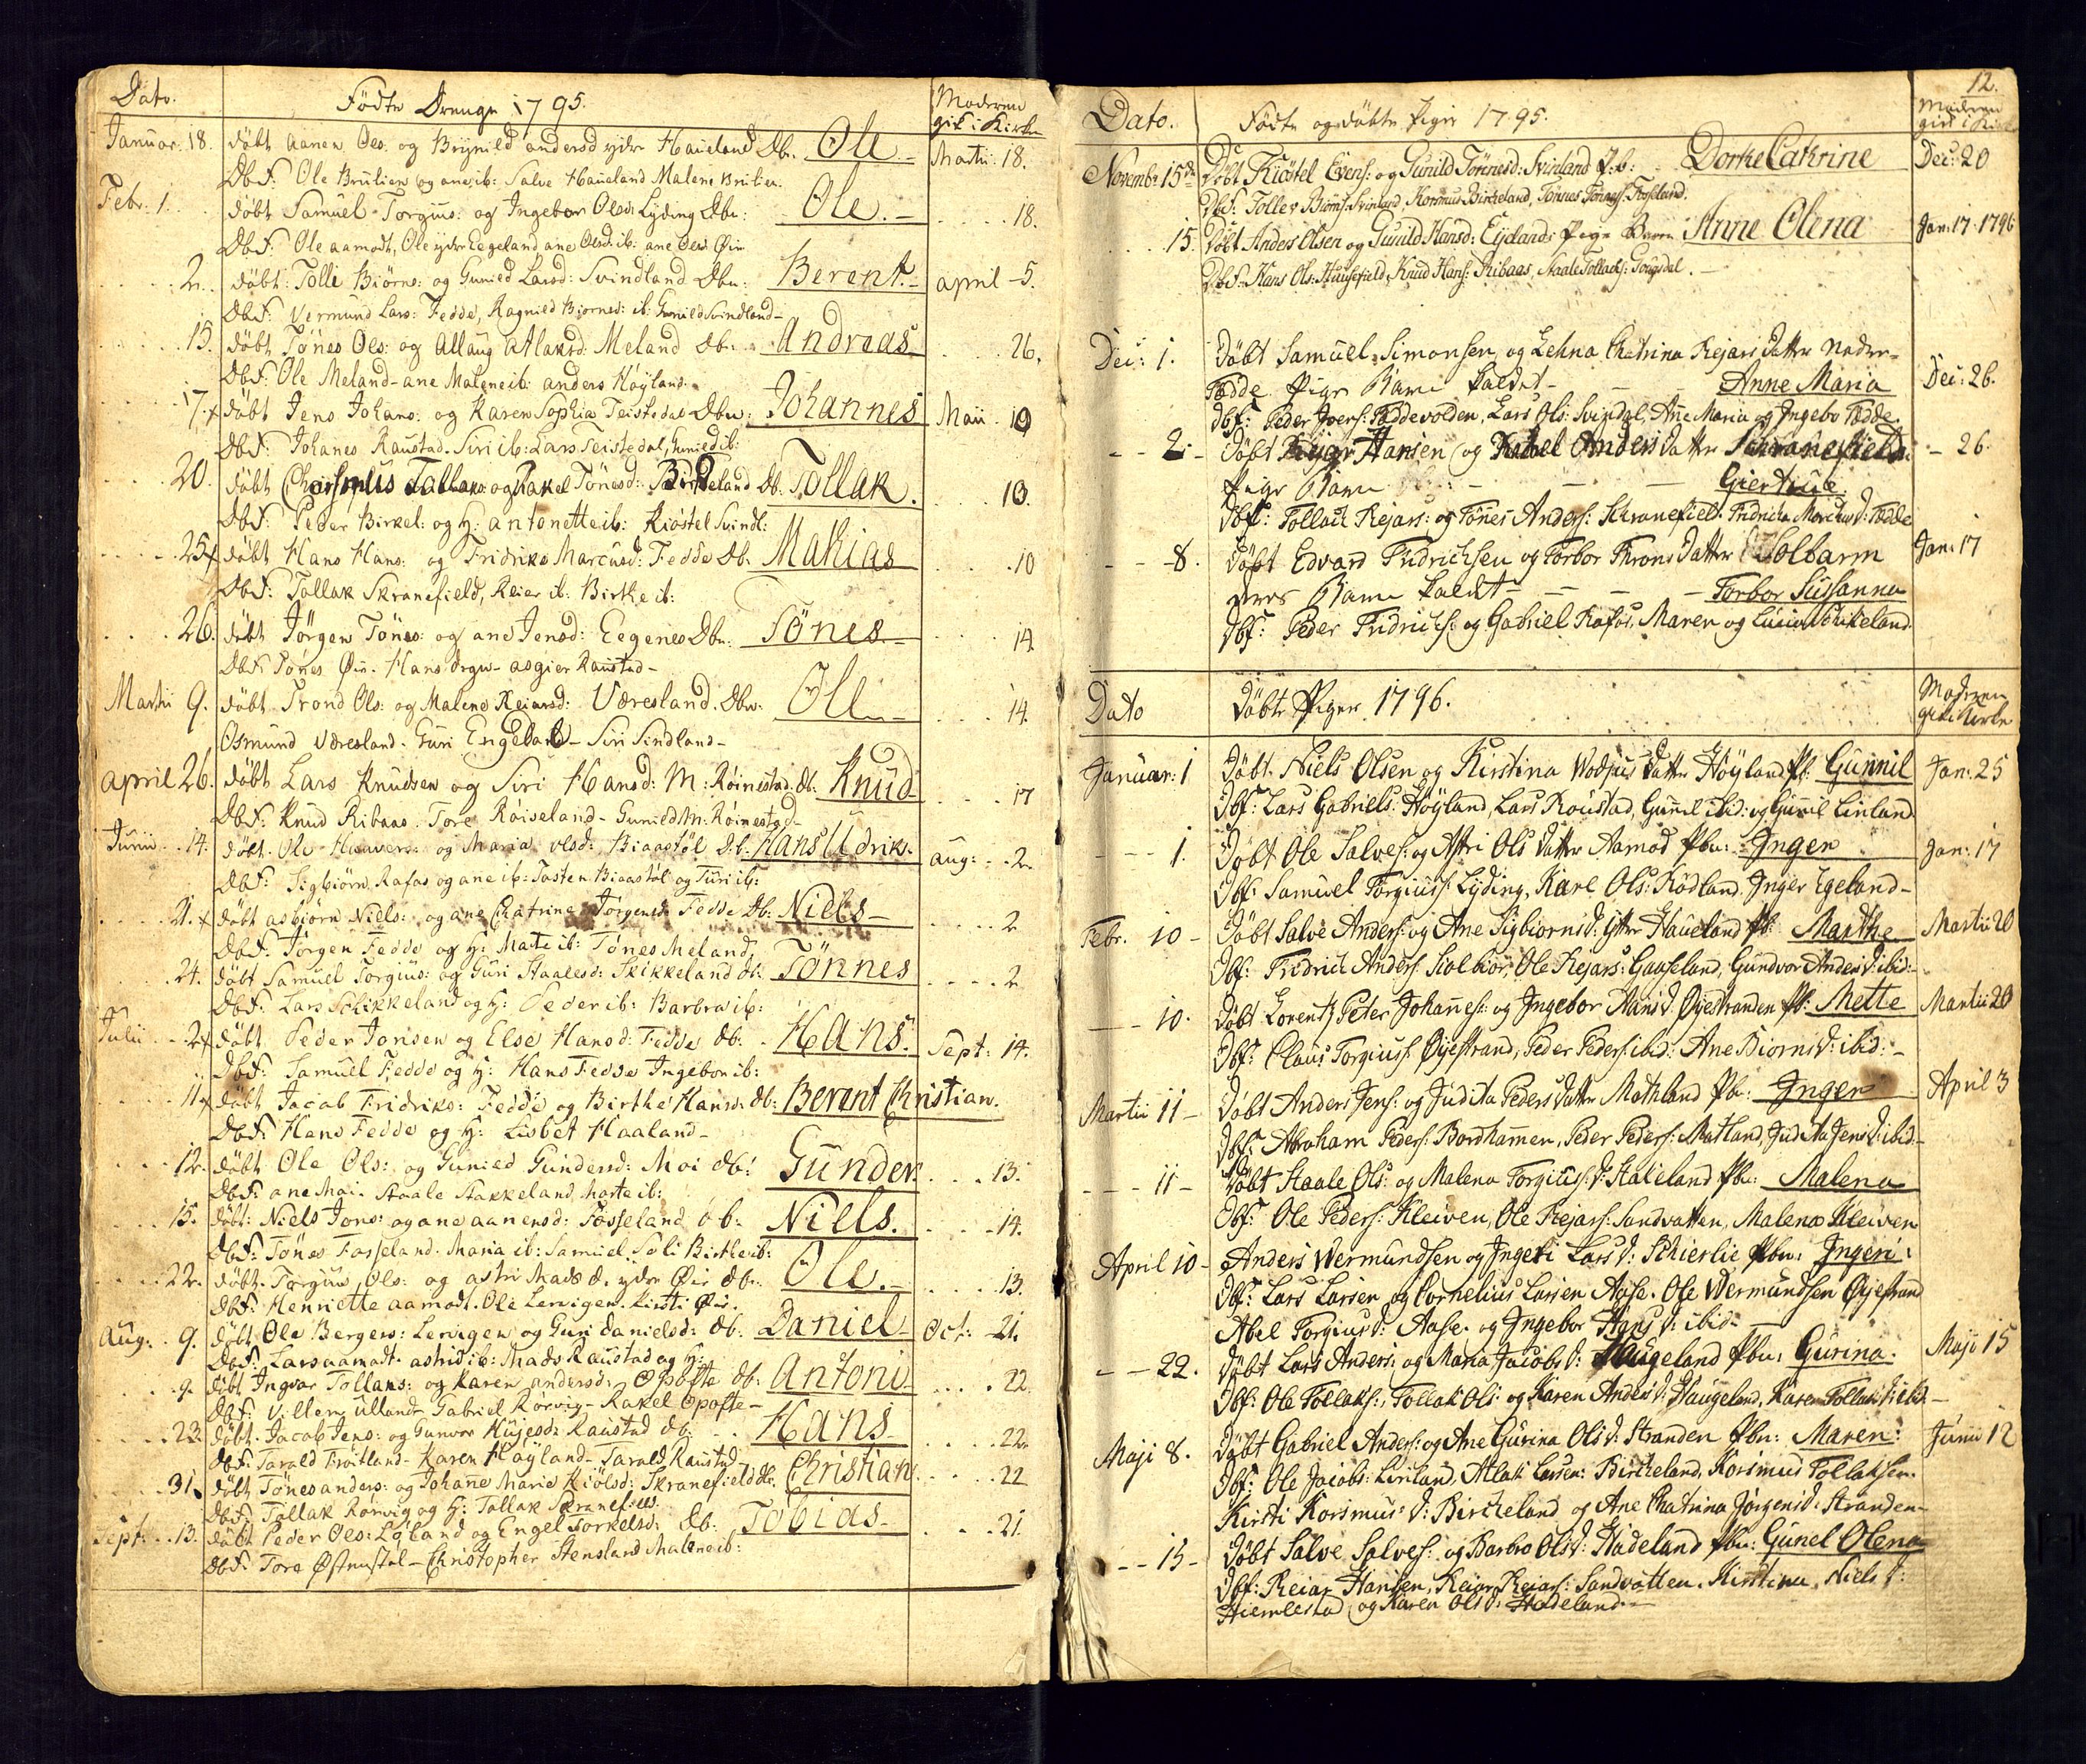 Dato. Födte Drenge 1795. Moderen gik i Kirke
Januar. 18. döbt Aanen Ols: og Brynild andersd ydre Haueland Db. Ole Martii 18.
DbF: Ole og ane ib: Salve Haueland Malene
Febr. 1. döbt Samuel Torgius: og Ingebor Olsd: Lyding Dbn: Ole. 18.
DbF: Ole aamodt, Ole ydre Eegeland ane Olsd: ib: ane Olsd: Öie
2. döbt: Tolle Biörns: og Gunild Larsd: Svindland Dbn: Berent. april 5.
DbF: Vermund Lars: Fedde, Ragnild Biornsd: ib: Gunild Svindland
15. döbt Tönes Ols: og Allaug Atlaksd: Meland Db: Andreas 26.
DbF: Ole Meland - ane Malene ib: anders Höyland
17. döbt Jens Johans: og Karen Sophia Teistedal Dbn: Johannes Maii 10
DbF: Johanes Raustad. Siri ib: Lars Teistedal, Gunild ib:
20. döbt Tollaks: og Rakel Tönesd: Birkeland Db. Tollak. 10.
DbF: Peder Birkel: og H: antonette ib: Kiöstel Svindl:
25 döbt Hans Hans: og Fridrike Marcusd: Fedde Db. Mathias 10
DbF: Tollak Skranefield, Reier ib: Birthe ib:
26. döbt Jörgen Tönes: og ane Jensd: Eegenes Dbn: Tönes 14.
DbF: Tönes Öie. Hans - asgier Raustad
Martii 9. döbt Trond Ols: og Malene Reiarsd: Væresland. Dbn: Ole 14.
Osmund Væresland. Guri Engeland - Siri Sindland
april 26. döbt Lars Knudsen og Siri Hansd: M: Röinestad. Db. Knud 17
DbF: Knud Ribaas. Tore Röiseland - Gunild M: Röinestad
Junii 14. döbt Ole og Maria Olsd: Biaastöl Db: Hans Udriks. aug: 2.
DbF: Sigbiörn Rafas og ane ib: Tosten Biaastöl og Turi ib:
21. döbt asbiörn Niels: og ane Chatrine Jörgensd: Fedde Db: Niels 2
DbF: Jörgen Fedde og H: Mate ib: Tönes Meland
24. döbt Samuel Torgius: og Guri Staalesd: Skikkeland Db: Tönnes 2
DbF: Lars Schikkeland og H: Peder ib: Barbra ib:
Julii 2 döbt Peder Jonsen og Else Hansd: Fedde Db: Hans. Sept: 14.
DbF: Samuel Fedde og H: Hans Fedde Ingebor ib:
11. döbt Jacob Fridriks: Fedde og Birthe Hansd: db: Berent Christian.
DbF: Hans Fedde og H: Lisbet Haaland
12. döbt Ole Ols: og Gunild Gundersd: Moi db: Gunder. 13.
DbF: ane Moi. Staale Stakkeland, Marte ib:
15. döbt: Niels Jons: og ane aanensd: Fosseland db: Niels. 14.
DbF: Tönes Fosseland. Maria ib: Samuel Soli Birthe ib:
22. döbt. Torgius Ols: og astri Mads d. ydre Öie db: Ole. 13.
DbF: Henriette aamodt. Ole Lervigen. Kirsti Öie.
Aug. 9. döbt Ole Bergers: Lervigen og Guri danielsd: db: Daniel Oct: 21.
DbF: Lars aamodt. astrid ib: Mads Raustad og H:
9. döbt Ingvar Tollaks: og Karen andersd: Opofte db: Antoni 22
DbF: Villem ulland. Gabriel Rörvig - Rakel Opofte
23. döbt. Jacob Jens: og Gunvor Raustad db: Hans 22
DbF: Tarald Fröitland - Karen Höyland - Tarald Raustad
31. döbt Tönes anders: og Johane Marie Kiölsd: Skranefield db. Christian. 22
DbF: Tollak Rörvig og H: Tollak Skranefield.
Sept: 13. döbt Peder Ols: Löland og Engel Torkelsd: db: Tobias 21.
DbF: Tore Östnestol - Christopher Stensland Malene ib:
12.
Dato. Födte og döbte Piger 1795. Moderen gik i Kirke
Novembr: 15de Döbt Kiöstel Evens: og Gunild Törresd: Svinland P:b: Dorthe Cathrine Dec: 20
DbF: Tollev Biörns: Svinland, Korsmus Bircheland, Tönnes Tönness: Troseland.
15. Döbt Anders Olsen og Gunild Hansd: Eigelands Pige Barn Anne Olena Jan: 17. 1796
DbF: Hans Ols: Hausefield, Knud Hans: Ribaas, Staale Tollachs: Gougdal.
Dec: 1. Döbt Samuel Simonsen, og Lehna Chatrina Rejars Datter Neder-
Fædde Pige Barn kaldet Anne Maria Dec: 26.
Dbf: Peder Ivers: Fæddevolden, Lars Ols: Svindal, Ane Maria og Ingebo Fædde.
2. Döbt Rejer Hansen og Rachel Anders Datter Schranefield. 26.
Pige Barn Giertrue
Dbf: Tollach Rejars: og Tönnes Anders: Schranefield. Fridricha Morchus D: Fædde
8. Döbt Edvard Fridrichsen og Torbor Throns Datter Solbarm Jan: 17
deres Barn kaldt Torbor Sussanna
Dbf: Peder Fridrichs: og Gabriel Rafos, Maren og Lucia Schikeland.
Dato Döbte Piger 1796. Moderen gik i Kirke
Januar: 1 Döbt. Niels Olsen og Kirstina Wodjus Datter Höyland Pb: Gunnil Jan: 25
Dbf: Lars Gabriels: Höyland, Lars Roustad, Gunnil ibid: og Gunnil Linland.
1. Döbt Ole Salves: og Astri Ols Datter Aamod Pbn: Inger Jan: 17
Dbf: Samuel Torgiuss: Lyding, Karl Ols: Rödland, Inger Egeland
Febr. 10 Döbt Salve Anders: og Ane Sigbiorns D: Haueland Pb: Marthe Martii 20
Dbf: Fridrich Anders: Ole Rejars: Gaaseland, Gundvor Anders D: ibid:
10. Döbt Lorentz Peter Johanes: og Ingebor Hans D. Öyestranden Pb: Mette Martii 20
Dbf: Claus Torgiuss: Öyestrand, Peder Peders: ibid: Ane Biorns D: ibid:
Martii 11 Döbt Anders Jens: og Judita Peders Datter Mathland Pbn: Inger April 3
Dbf: Abraham Peders: Bordhammen, Peder Peders: Matland, Judita Jens D: ibid:
11 Döbt Staale Ols: og Malena Torgiuss D: Staleland Pbn: Malena
Dbf: Ole Peders: Kleiven, Ole Rejars: Sandvatten, Malena Kleiven
April 10 Anders Wermundsen og Ingeri Lars D: Schierlie Pbn: Ingeri:
Dbf: Lars Larsen og Cornelius Larsen Aase. Ole Wermundsen Öyestrand
Abel Torgius D: Aase. og Ingebor Hans D: ibid.
22. Döbt Lars Anders: og Maria Jacobs D: Haugeland Pbn: Gurina. Maji 15
Dbf: Ole Tollaks:, Tollak Ols: og Karen Anders D: Haugeland, Karen Tollaks D: ibid.
Maji 8. Döbt Gabriel Anders: og Ane Gurina Ols D: Stranden Pbn: Maren: Junii 12
Dbf: Ole Jacobs: Linland, Atlak Larsen: Bircheland, Korsmus Tollaksen.
Kirsti Korsmus D: Bircheland og Ane Chatrina Jörgens D: Stranden
15 Döbt Salve Salves: og Barbro Ols D: Stadeland Pbn: Gunel Olena
Dbf: Reiar Hansen, Reiar Reiars: Sandvatten. Kirstine Niels D:
Hiemlestad og Karen Ols D: Stadeland.